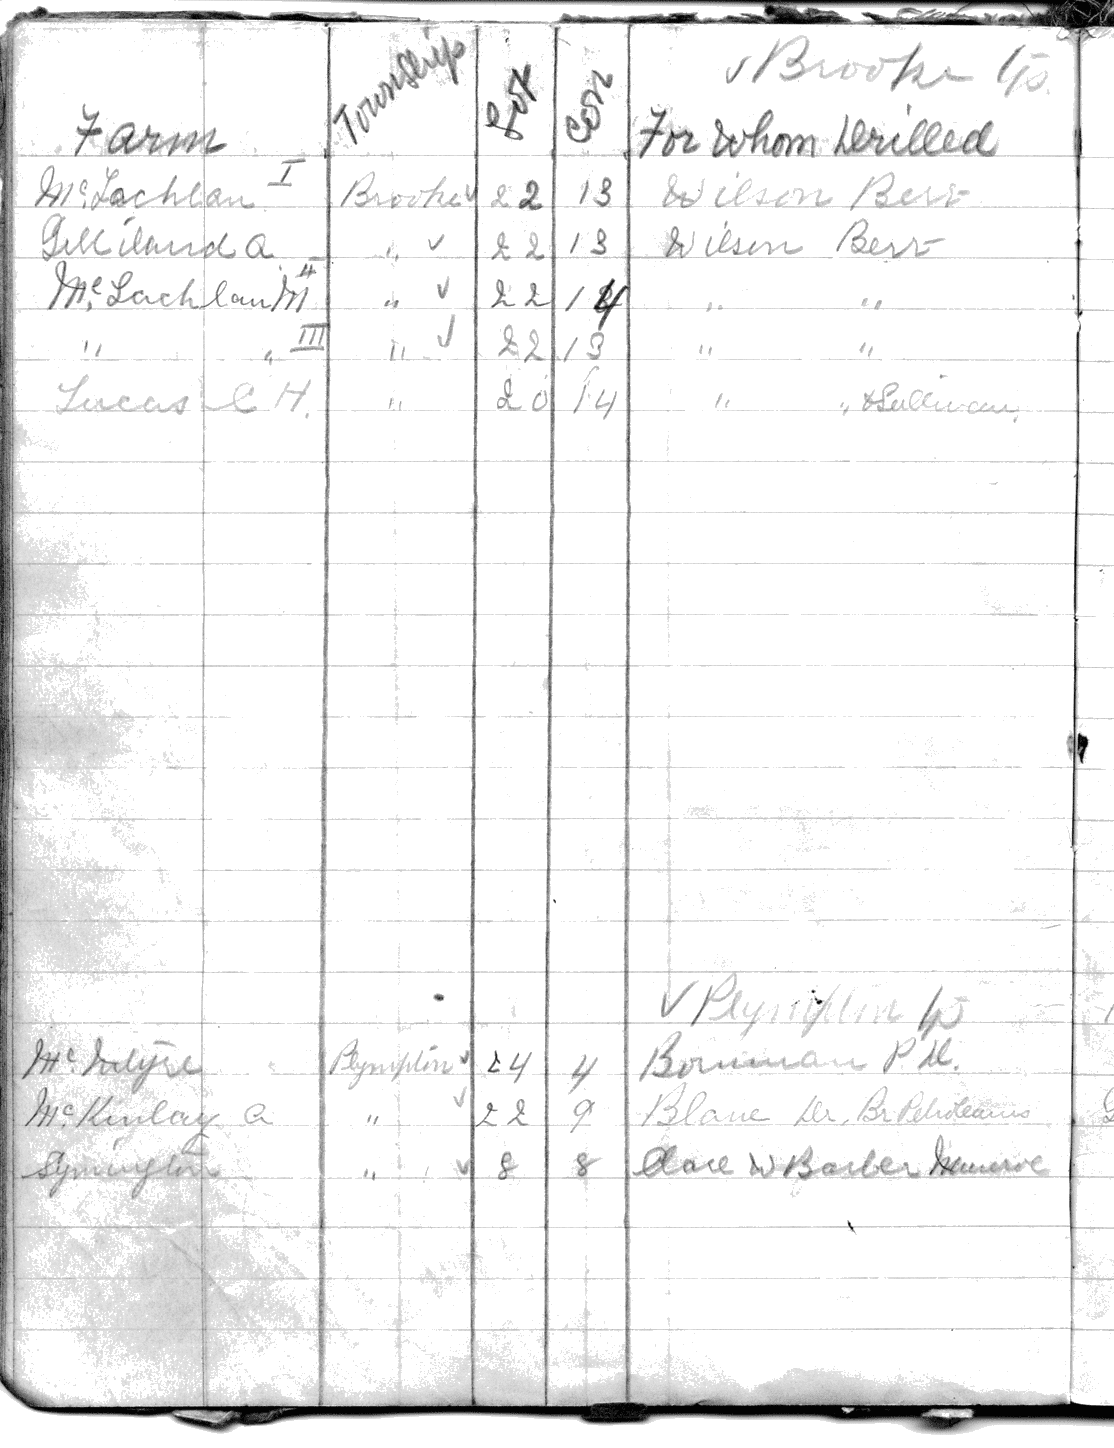 ✓ Brooke Tp.
Farm Township Lot Con For Whom Drilled
McLachlan I Brooke ✓ 22 13 Wilson Berr
Gilliland A " ✓ 22 13 Wilson Berr
McLachlan M 4 " ✓ 22 14 " "
" " III " ✓ 22 13 " "
Lucas C H. " 20 14 " " & Sullivan,
✓ Plympton Tp
McIntyre Plympton ✓ 24 4 Bowman P. D.
McKinlay A " ✓ 22 9 Blane Dr. Br Petroleums
Symington " ✓ 8 8 Clare W Barber Munroe